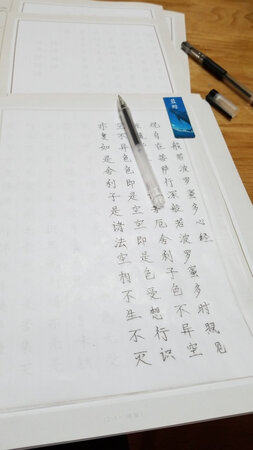 蓝鲸
般若波罗蜜多心经
观自在菩萨行深般若波罗蜜多时照见
厄舍利子色不异空
空不异色色即是空空即是色受想行识
亦复如是舍利子是诸法空相不生不灭